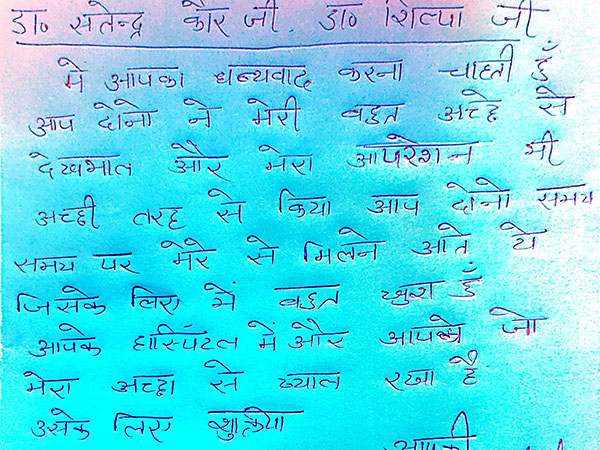 डा० सतेन्द्र कौर जी. डा० शिल्पा जी
में आपका धन्यवाद करना चाहती हुँ
आप दोनो ने मेरी बहुत अच्छे से
देखभाल और मेरा आपरेशन भी
अच्छी तरह से किया आप दोनो समय
समय पर मेरे से मिलने आते थे
जिसके लिए में बहुत खुश हुँ
आपके हास्पिटल में और आपने जो
मेरा अच्छा से ख्याल रखा है
उसके लिए शुक्रिया
आपकी